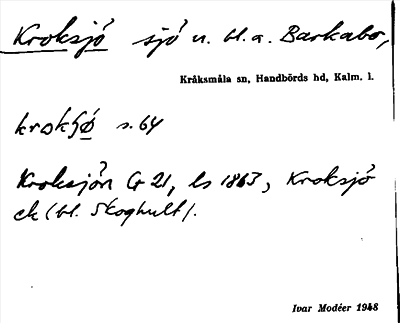 Kroksjö sjö n. bl. a. Barkabo,
Kråksmåla sn, Handbörds hd, Kalm. l.
s. 64
Kroksjön G 21, ls 1863, Kroksjö
ek (bl. Skoghult).
Ivar Modéer 1948